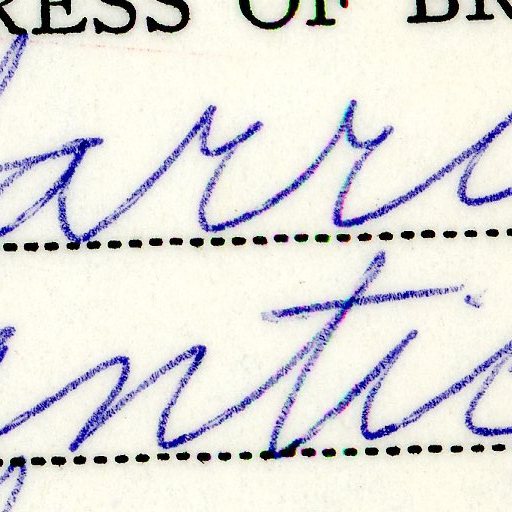 RESS OF BR
arr
ntic